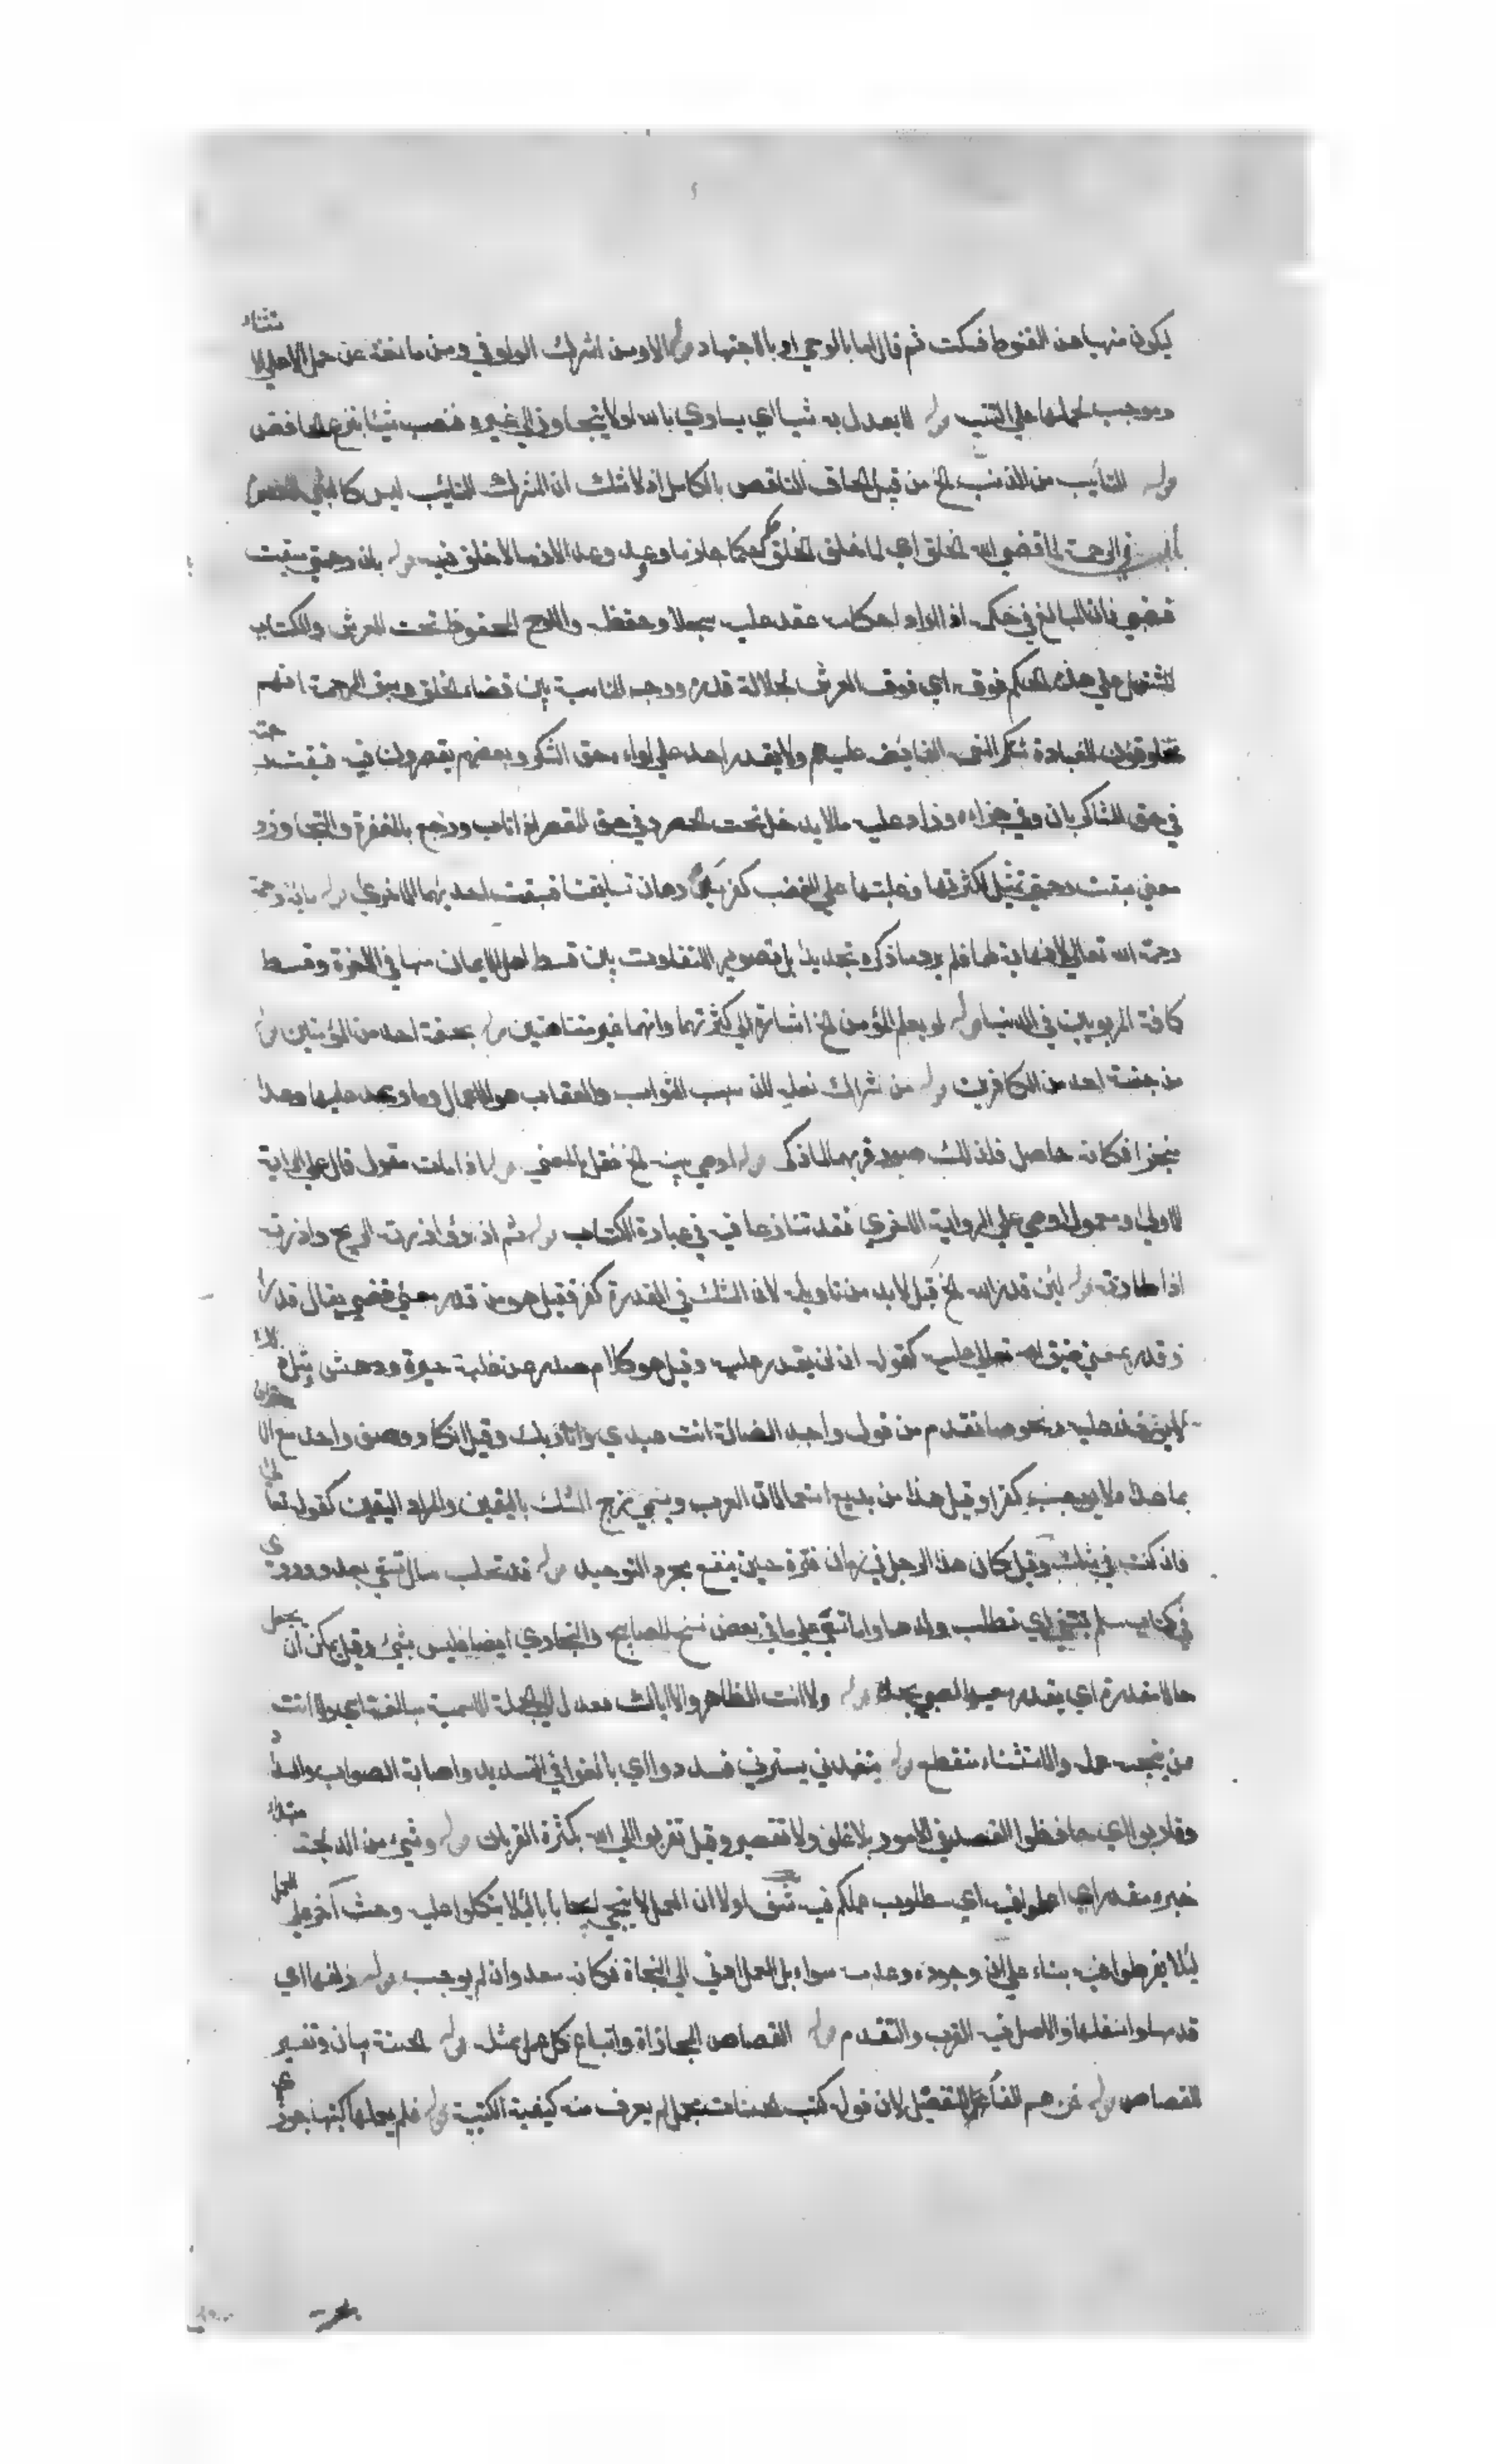 ليكون منهيا عن القنوط فسكت ثم قال اما بالوحي او بالاجتهاد قوله الا ومن اشرك الواو في ومن مانعة عن حمل الا على الاستثناء
وموجب لحملها على التنبيه قوله لا يعدل به شيا اي يساوي بالله او لا يتجاوز الى غيره فنصب شيئا بنزع الخافض
قوله التائب من الذنب الخ من قبيل الحاق الناقص بالكامل اذ لا شك ان المشرك التائب ليس كالنبي المعصوم
باب في الرحمة لما قضى الله الخلق اي لما خلق الخلق حكم حكما جازما ووعد وعدا لازما لا خلف فيه قوله بان رحمتي سبقت
غضبي فان المبالغ في حكمه اذا اراد احكامه عقد عليه سجلا وحفظه واللوح المحفوظ تحت العرش والكتاب
المشتمل على هذا الحكم فوقه اي فوق العرش لجلالة قدره ووجه المناسبة بين قضاء الخلق وسبق الرحمة انهم
مخلوقون للعبادة شكرا للنعم الفائضة عليهم ولا يقدر احد على اداء حق الشكر وبعضهم يقصرون فيه فسبقت رحمته
في حق الشاكر بان وفى جزاءه وزاد عليه ما لا يدخل تحت الحصر وفي حق المقصر اذا تاب ورجع بالمغفرة والتجاوز و
معنى سبقت رحمتي تمثيل لكثرتها وغلبتها على الغضب كفرسي رهان تسابقتا فسبقت احديهما الاخرى قوله مائة رحمة
رحمة الله تعالى لا نهاية لها فلم يرد بما ذكره تحديدا بل تصوير التفاوت بين قسط اهل الايمان منها في الاخرة وقسط
كافة المربوبين في الدنيا قوله لو يعلم المؤمن الخ اشارة الى كثرتهما وانهما غير متناهتين قوله بجنته احد من المؤمنين قوله
من جنته احد من الكافرين قوله من شراك نعله لان سبب الثواب والعقاب هو الاعمال وما وعد عليها وعدا
منجزا فكانه حاصل فلذلك صور قربهما لما ذكر قوله اوصى بنيه الخ فنقل بالمعنى قوله اذا مات مقول قال على الرواية
الاولى او معمول اوصى على الرواية الاخرى فقد تنازعا فيه في عبارة الكتاب قوله ثم اذروه اذرته الريح واذرته
اذا اطارته قوله لئن قدر الله الخ قيل لابد من تاويله لان الشك في القدرة كفر فقيل هو من قدر بمعنى قضى يقال قدر
وقدر بمعنى ضيق الله تعالى عليه كقوله ان لن نقدر عليه وقيل هو كلام صدر عن غلبة حيرة ودهش ومثل ذلك
لا يؤاخذ عليه ونحوه ما تقدم من قول واجد الضالة انت عبدي وانا ربك وقيل انكار وصف واحد مع الاعتراف
بما عداه لا يوجب كفرا وقيل هذا من بديع استعمالات العرب ويسمى مزج الشك باليقين والمراد اليقين كقوله تعالى
فان كنت في شك وقيل كان هذا الرجل في زمان فترة حين ينفع مجرد التوحيد قوله قد تحلب سال تسقي بعد وروي
في كتاب مسلم تبتغي اي تطلب ولدها واما تسقي على ما في بعض نسخ المصابيح والبخاري ايضا فليس بشيء وقيل يمكن ان يجعل
حالا مقدرة اي يقدر سعيها لصبي تجده قوله ولا انت الظاهر ولا اياك فعدل الى الجملة الاسمية مبالغة اي ولا انت
من ينجيه عمله والاستثناء منقطع قوله يتغمدني يسترني فسددوا اي بالغوا في التسديد واصابة الصواب والسداد
وقاربوا اي حافظوا القصد في الامور بلا غلو ولا تقصير وقيل تقربوا الى الله بكثرة القربات قوله وشيء من الدلجة مبتدأ
خبره مقدر اي اعملوا فيه اي مطلوب عملكم فيه بين اولا ان العمل لا ينجي ايجابا لئلا يتكلوا عليه وحث آخرا على العمل
لئلا يفرطوا فيه بناء على ان وجوده وعدمه سواء بل العمل ادنى الى النجاة فكانه معد وان لم يوجب قوله زلفها اي
قدمها واسلفها والاصل فيه القرب والتقدم قوله القصاص المجازاة واتباع كل عمل بمثله قوله الحسنة بيان وتفسير
للقصاص قوله فمن هم الفاء للتفصيل لان قوله كتب الحسنات مجمل لم يعرف منه كيفية الكتبة قوله فلم يعملها كتبها جوزي